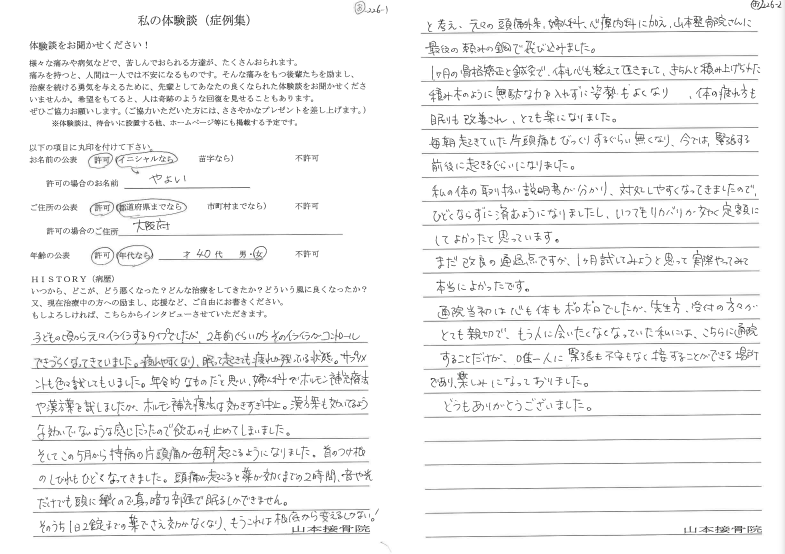 あ226-1
私の体験談（症例集）
体験談をお聞かせください！
様々な痛みや病気などで、苦しんでおられる方達が、たくさんおられます。
痛みを持つと、人間は一人では不安になるものです。そんな痛みをもつ後輩たちを励まし、
治療を続ける勇気を与えるために、先輩としてあなたの良くなられた体験談をお聞かせくださ
いませんか。希望をもてると、人は奇跡のような回復を見せることもあります。
ぜひご協力お願いします。（ご協力いただいた方には、ささやかなプレゼントを差し上げます。）
※体験談は、待合いに設置する他、ホームページ等にも掲載する予定です。
以下の項目に丸印を付けて下さい。
お名前の公表 許可（イニシャルなら 苗字なら） 不許可
許可の場合のお名前 やよい
ご住所の公表 許可（都道府県までなら 市町村までなら） 不許可
許可の場合のご住所 大阪府
年齢の公表 許可（年代なら） 才 40代 男・女 不許可
ＨＩＳＴＯＲＹ（病歴）
いつから、どこが、どう悪くなった？どんな治療をしてきたか？どういう風に良くなったか？
又、現在治療中の方への励まし、応援など、ご自由にお書きください。
もしよろしければ、こちらからインタビューさせていただきます。
子どもの頃から元々イライラするタイプでしたが、2年前ぐらいからそのイライラがコントロール
できづらくなってきていました。疲れやすくなり、眠って起きても疲れが残っている状態。サプリメ
ントも色々試してもいました。年令的なものだと思い、婦人科でホルモン補充療法
や漢方薬を試しましたが、ホルモン補充療法は効きすぎ中止。漢方薬も効いてるよう
な効いてないような感じだったので飲むのも止めてしまいました。
そしてこの5月から持病の片頭痛が毎朝起こるようになりました。首のつけ根
のしびれもひどくなってきました。頭痛が起こると薬が効くまでの2時間、音や光
だけでも頭に響くので真っ暗な部屋で眠るしかできません。
そのうち1日2錠までの薬でさえ効かなくなり、もうこれは根底から変えるしかない！
山本接骨院
あ226-2
と考え、元々の頭痛外来、婦人科、心療内科に加え、山本整骨院さんに
最後の頼みの綱で飛び込みました。
1ヶ月の骨格矯正と鍼灸で、体も心も整えて頂きまして、きちんと積み上げられた
積み木のように無駄な力を入れずに姿勢もよくなり、体の疲れ方も
眠りも改善され、とても楽になりました。
毎朝起きていた片頭痛もびっくりするぐらい無くなり、今では、緊張する
前後に起きるぐらいになりました。
私の体の取り扱い説明書が分かり、対処しやすくなってきましたので、
ひどくならずに済むようになりましたし、いつでもリカバリーが効く定額に
してよかったと思っています。
まだ改良の通過点ですが、1ヶ月試してみようと思って実際やってみて
本当によかったです。
通院当初は心も体もボロボロでしたが、先生方、受付の方々が
とても親切で、もう人に会いたくなくなっていた私には、こちらに通院
することだけが、唯一人に緊張も不安もなく接することができる場所
であり、楽しみになっておりました。
どうもありがとうございました。
山本接骨院